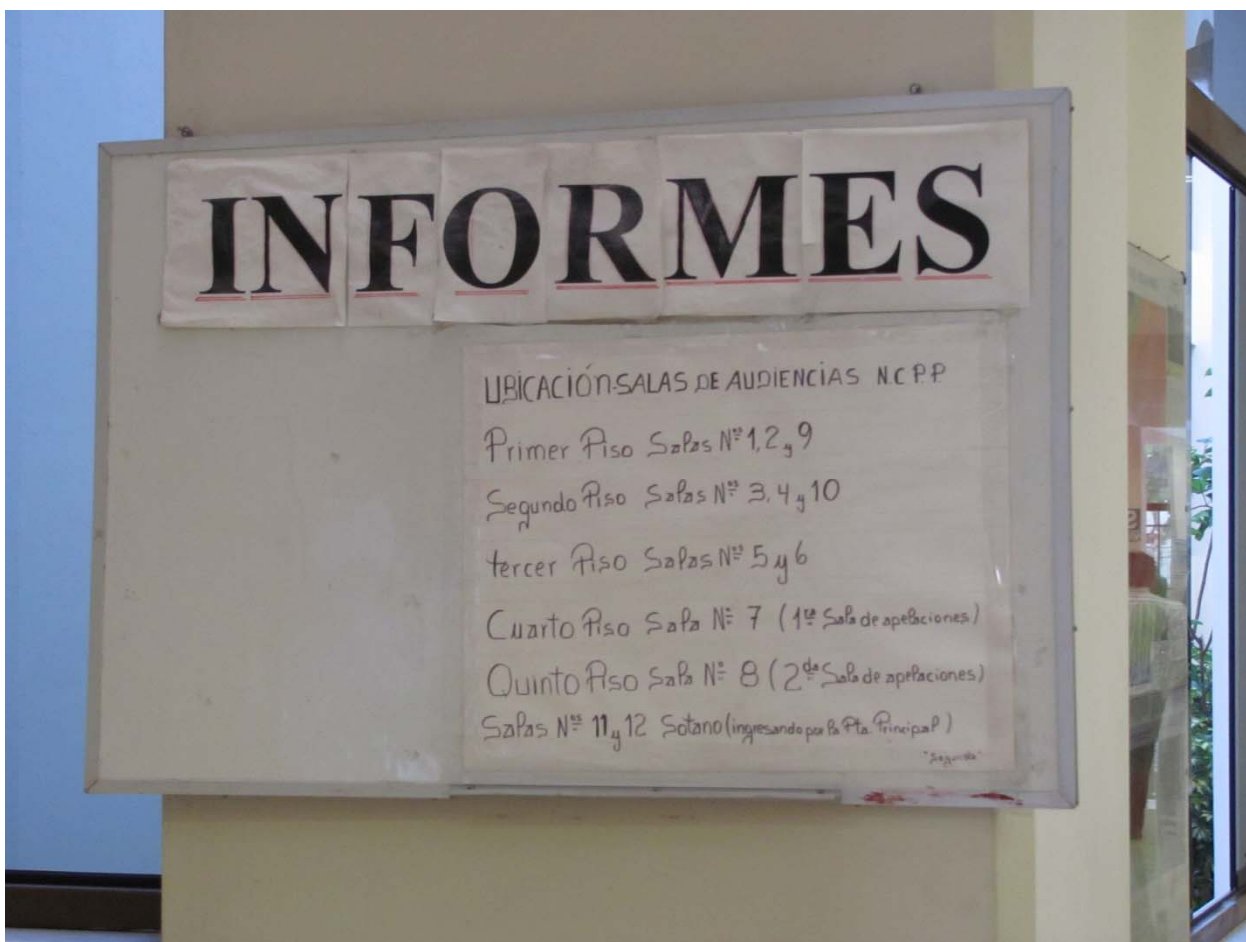 INFORMES
UBICACIÓN SALAS DE AUDIENCIAS N.C.P.P
Primer Piso Salas Nºs 1, 2 y 9
Segundo Piso Salas Nºs 3, 4 y 10
tercer Piso Salas Nºs 5 y 6
Cuarto Piso Sala Nº 7 (1ra Sala de apelaciones)
Quinto Piso Sala Nº 8 (2da Sala de apelaciones)
Salas Nºs 11 y 12 Sotano (ingresando por la Pta. Principal)